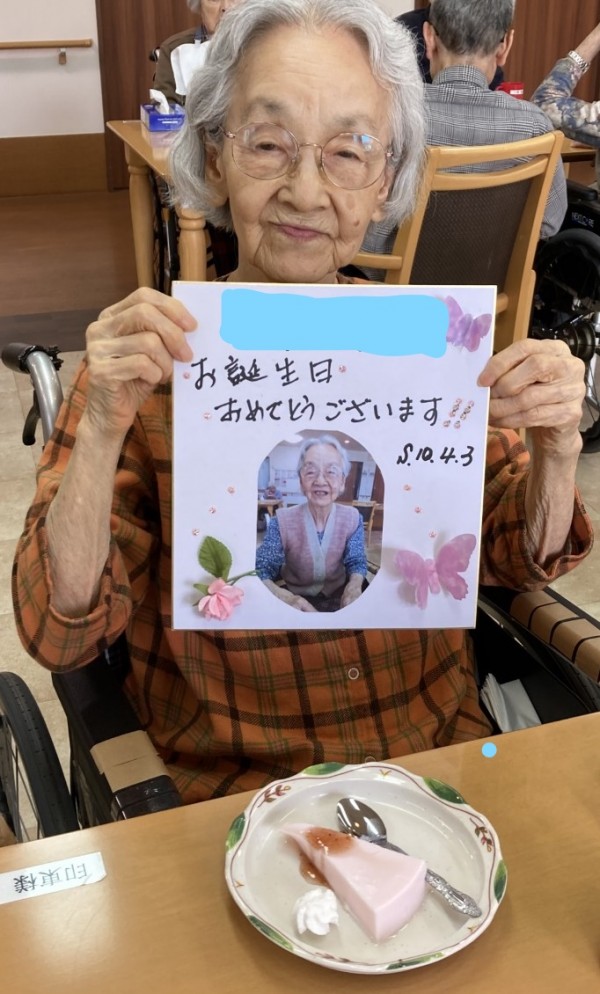 お誕生日
おめでとうございます!!
S.10.4.3
印東様